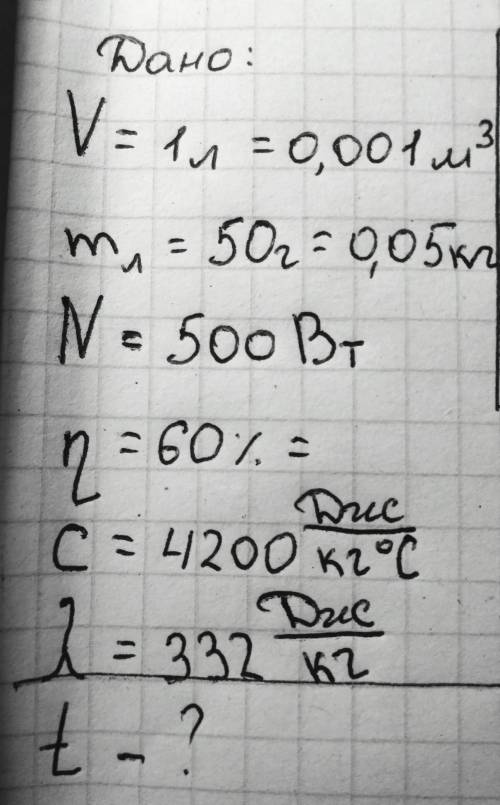 Дано:
V = 1л = 0,001м³
mл = 50г = 0,05кг
N = 500 Вт
η = 60% =
c = 4200 Дж/кг°C
λ = 332 Дж/кг
t - ?